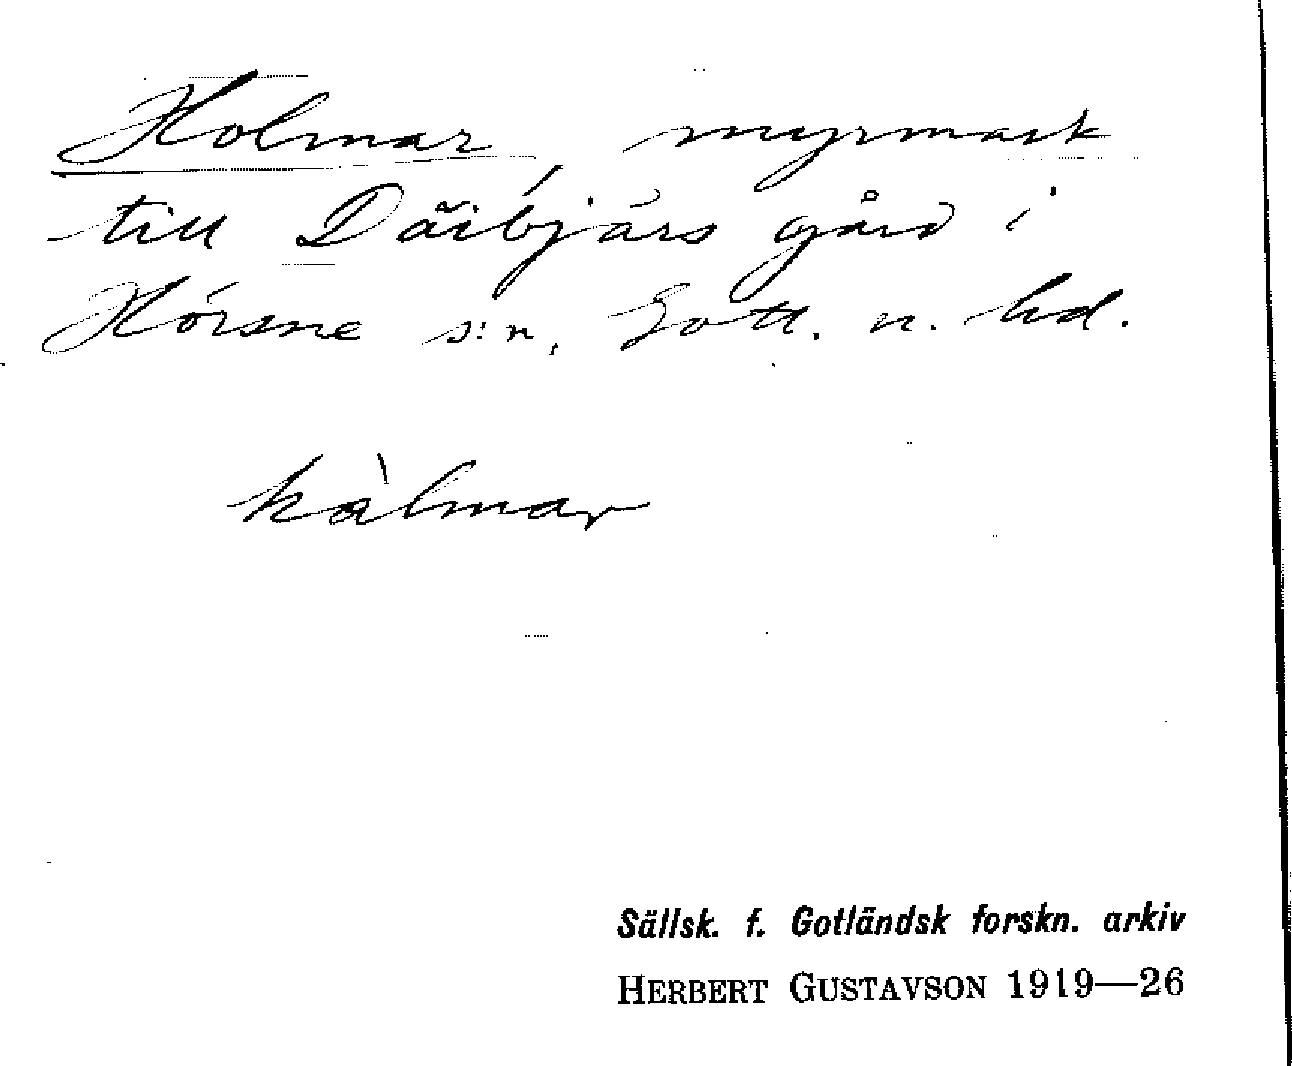 Holmar, myrmark
till Däibjärs gård i
Hörsne s:n, Gotl. n. hd.
hålmar
Sällsk. f. Gotländsk forskn. arkiv
HERBERT GUSTAVSON 1919—26